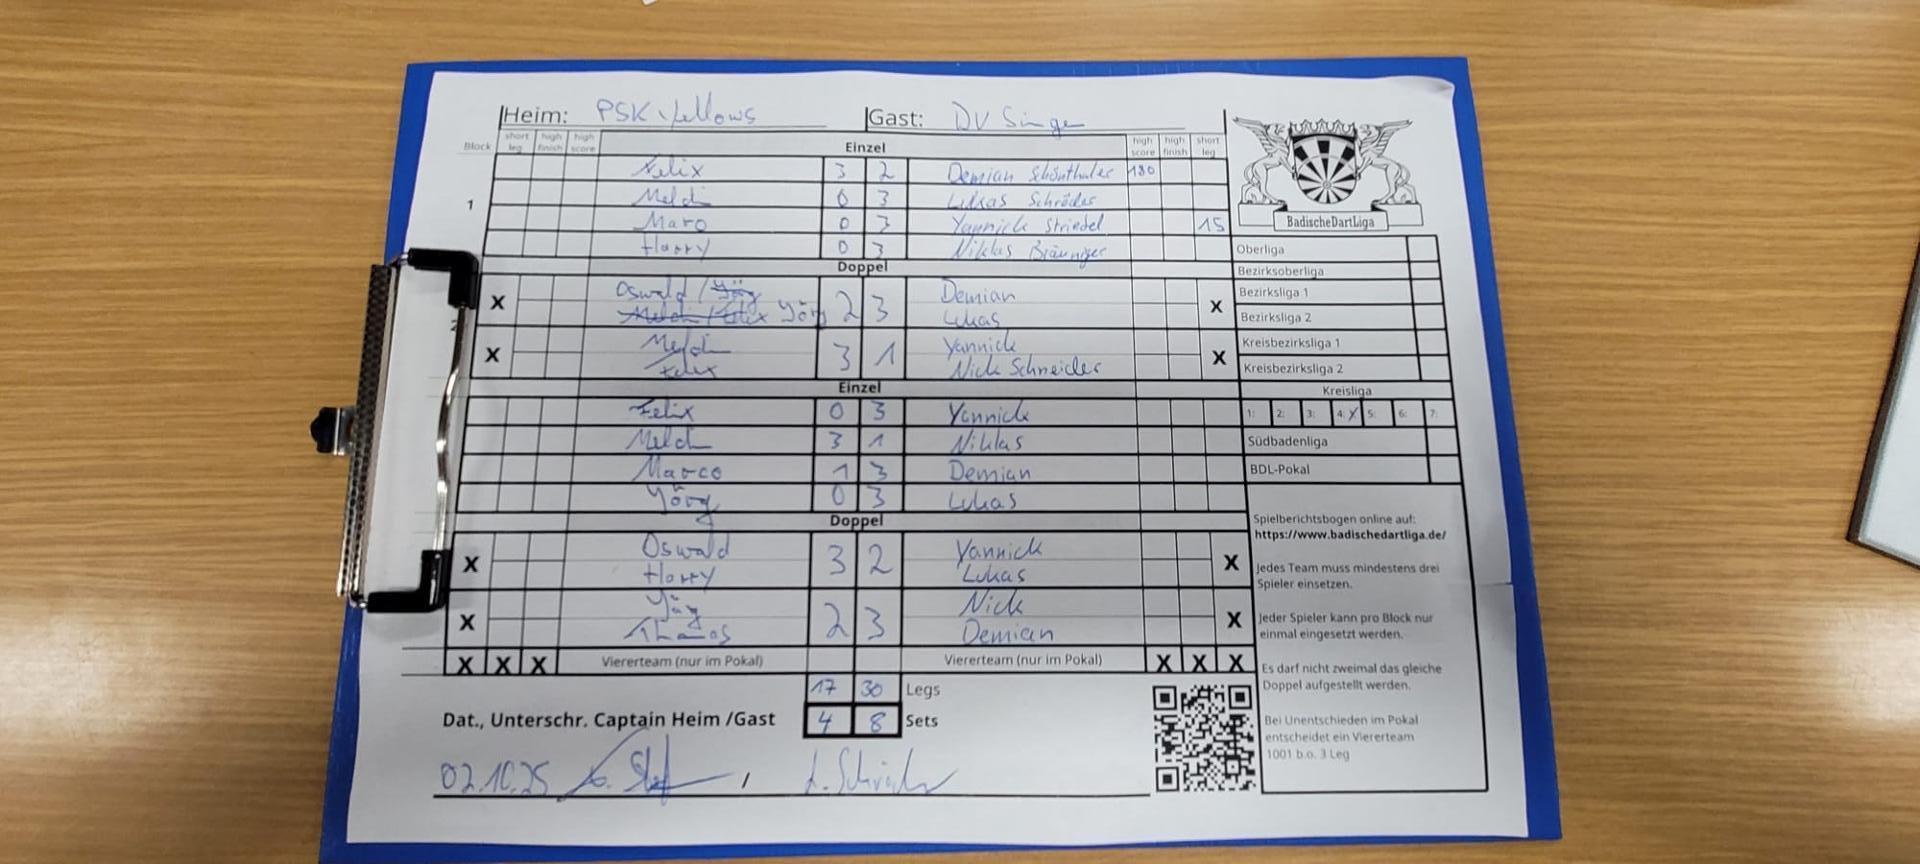 Heim: PSK Yellows Gast: DV Singe
Block short leg high finish high score Einzel high score high finish short leg
Felix 3 2 Demian Schönthaler 180
1 Melch 0 3 Lukas Schröder
Marco 0 3 Yannick Striedel 15
Harry 0 3 Niklas Bräuniger
BadischeDartLiga
Doppel
X Oswald / Jörg 2 3 Demian X
2 Melch / Felix Jörg Lukas
X Melch 3 1 Yannick X
Felix Nick Schneider
Einzel
Felix 0 3 Yannick
Melch 3 1 Niklas
Marco 1 3 Demian
Jörg 0 3 Lukas
Doppel
X Oswald 3 2 Yannick X
Harry Lukas
X Jörg 2 3 Nick X
Thomas Demian
X X X Viererteam (nur im Pokal) Viererteam (nur im Pokal) X X X
17 30 Legs
Dat., Unterschr. Captain Heim /Gast 4 8 Sets
02.10.25 / L. Schröder
Oberliga
Bezirksoberliga
Bezirksliga 1
Bezirksliga 2
Kreisbezirksliga 1
Kreisbezirksliga 2
Kreisliga
1: 2: 3: 4: X 5: 6: 7:
Südbadenliga
BDL-Pokal
Spielberichtsbogen online auf:
https://www.badischedartliga.de/
Jedes Team muss mindestens drei
Spieler einsetzen.
Jeder Spieler kann pro Block nur
einmal eingesetzt werden.
Es darf nicht zweimal das gleiche
Doppel aufgestellt werden.
Bei Unentschieden im Pokal
entscheidet ein Viererteam
1001 b.o. 3 Leg